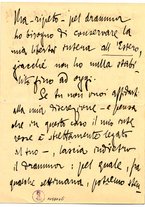 Ma - ripeto - pel dramma
ho bisogno di conservare la
mia libertà intera all'Estero,
giacchè non ho nulla stabi-
lito fino ad oggi.
Se tu non vuoi affidarti
alla mia discrezione - e pensa
che in questo caso il mio inte-
resse è strettamente legato
al tuo -, lascia indietro
il dramma: pel quale, fra
qualche settimana, potremo